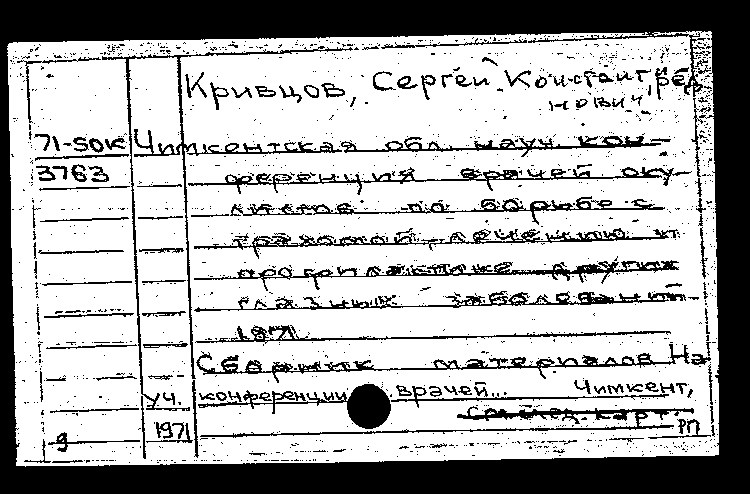 Кривцов, Сергей Константи, ред.
нович
71-50К Чимкентская обл. науч. кон-
3763 ференция врачей оку-
листов по борьбе с
трахомой, лечению и
профилактике других
глазных заболеваний.
1971.
Сборник материалов На
уч. конференции врачей... Чимкент,
1971
9 РП